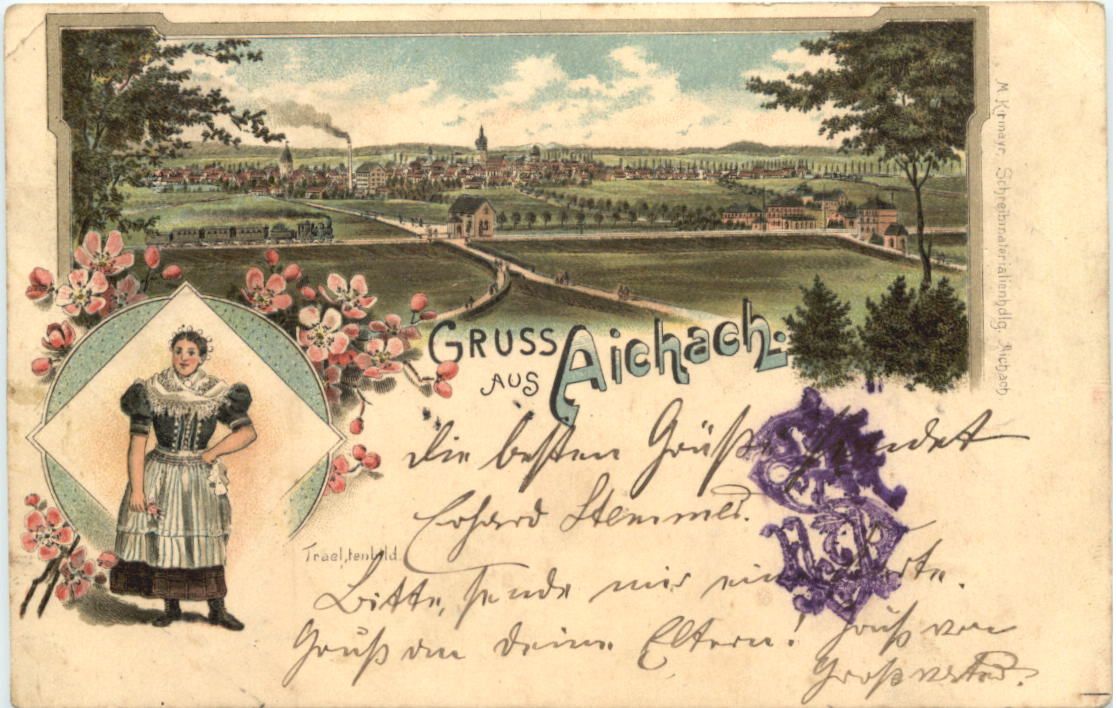 M. Kirmayr, Schreibmaterialienhdlg. Aichach.
GRUSS
AUS Aichach.
Trachtenbild
Die besten Grüße sendet
Erhard Stemmer.
Bitte, sende mir eine Karte.
Gruß an deine Eltern! Gruß von
Großvater.